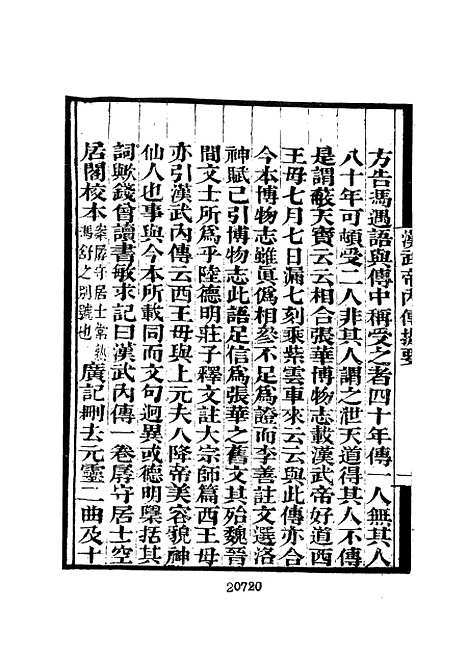 漢武帝內傳提要
方告馮遇語與傳中稱受之者四十年傳一人無其人
八十年可頓受二人非其人謂之泄天道得其人不傳
是謂蔽天寶云云相合張華博物志載漢武帝好道西
王母七月七日漏七刻乘紫雲車來云云與此傳亦合
今本博物志雖真偽相參不足為證而李善註文選洛
神賦已引博物志此語足信為張華之舊文其殆魏晉
間文士所為乎陸德明莊子釋文註大宗師篇西王母
亦引漢武內傳云西王母與上元夫人降帝美容貌神
仙人也事與今本所載同而文句迥異或德明檃括其
詞歟錢曾讀書敏求記曰漢武內傳一卷孱守居士空
居閣校本案孱守居士常熟馮舒之別號也廣記刪去元靈二曲及十
20720